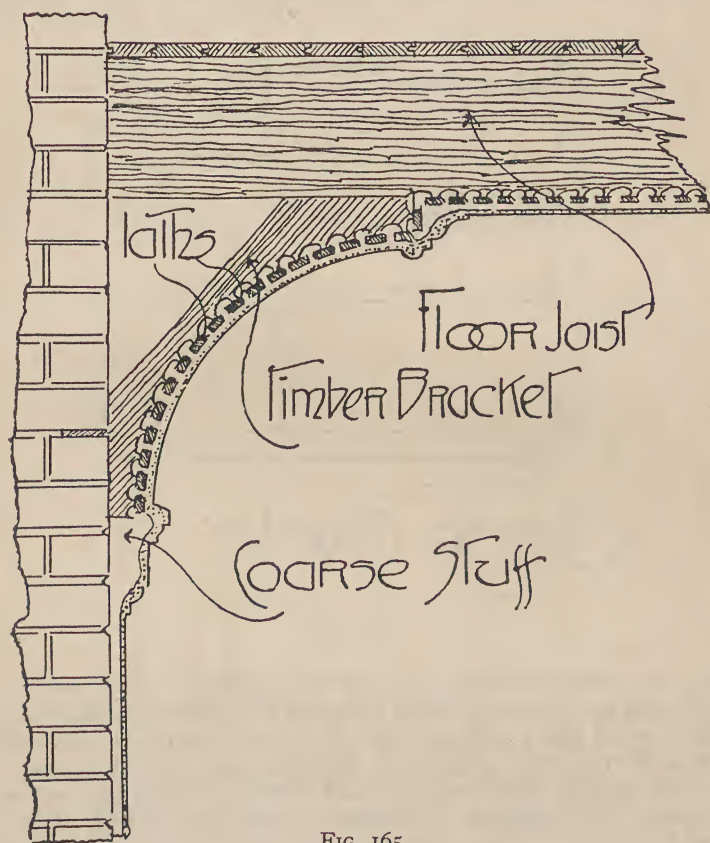 Laths
Floor Joist
Timber Bracket
Coarse Stuff
FIG. 165